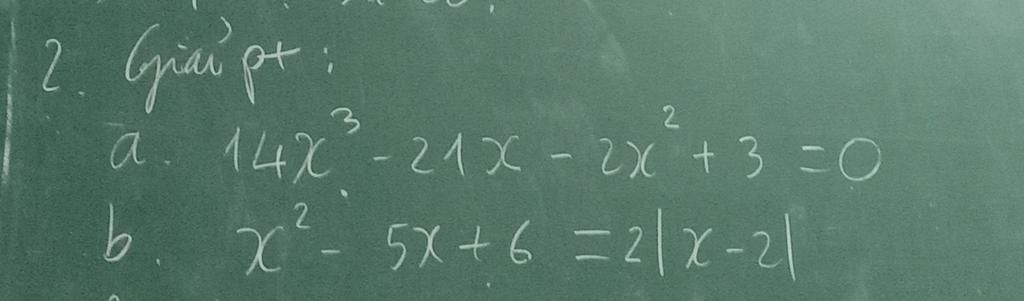 2. Giải pt:
a. 14x³ - 21x - 2x² + 3 = 0
b. x² - 5x + 6 = 2|x - 2|